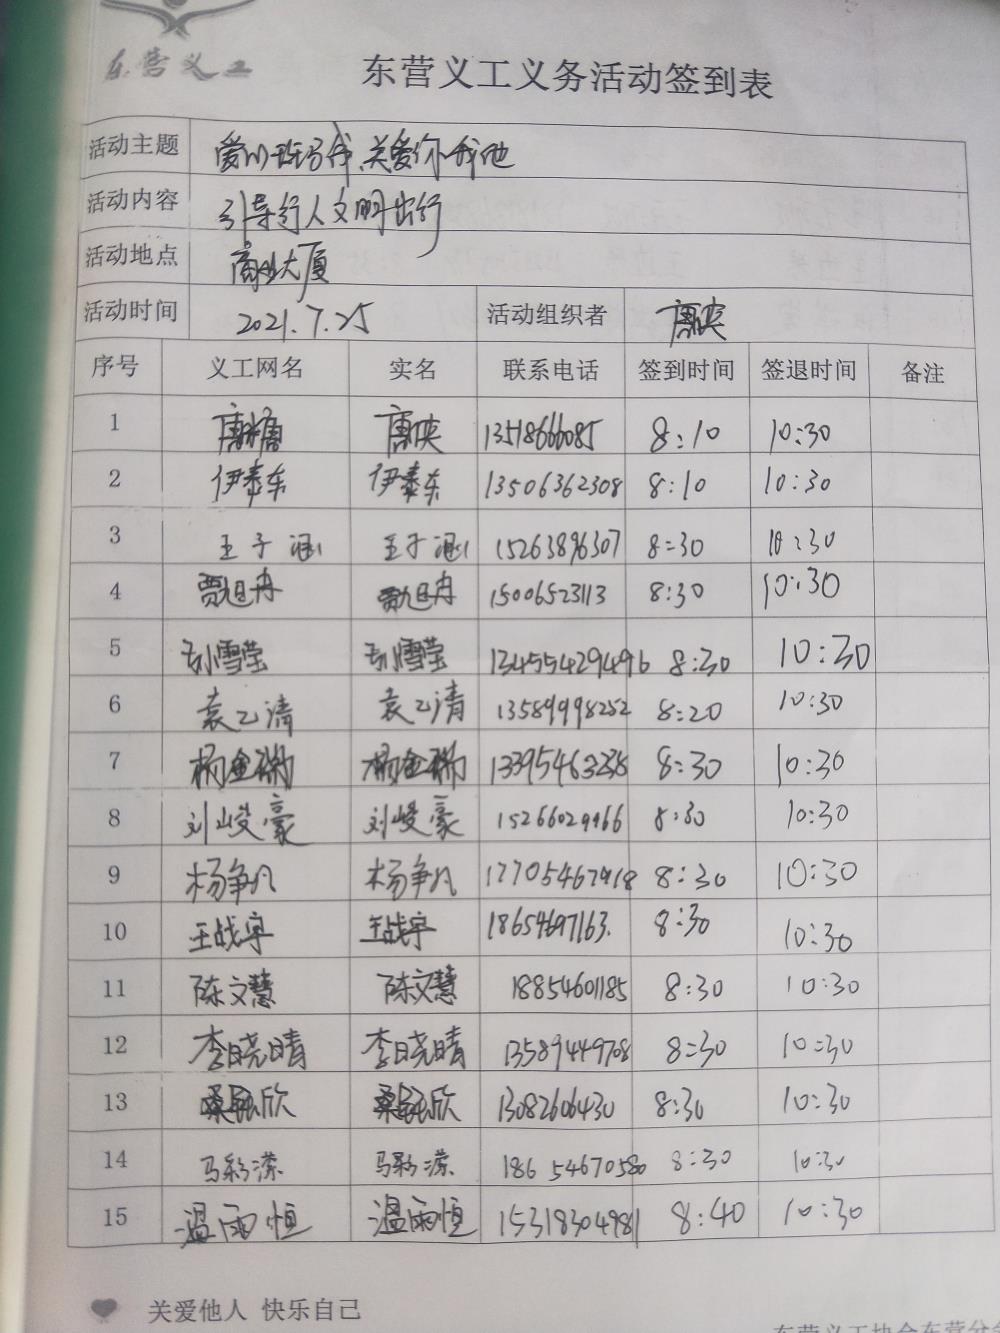 东营义工
东营义工义务活动签到表
活动主题 关爱你我他
活动内容 引导行人文明出行
活动地点 商业大厦
活动时间 2021.7.25 活动组织者
序号 义工网名 实名 联系电话 签到时间 签退时间 备注
1 13518666085 8:10 10:30
2 伊泰东 伊泰东 13506362308 8:10 10:30
3 王子涵 王子涵 15263896307 8:30 10:30
4 贾旭冉 贾旭冉 15006523113 8:30 10:30
5 刘雪莹 刘雪莹 13455429496 8:30 10:30
6 袁乙清 袁乙清 13589998252 8:20 10:30
7 8:30 10:30
8 刘峻豪 刘峻豪 15266029966 8:30 10:30
9 杨争凡 杨争凡 17705467918 8:30 10:30
10 王战宇 王战宇 18654697163. 8:30 10:30
11 陈文慧 陈文慧 18854601185 8:30 10:30
12 李晓晴 李晓晴 13589449708 8:30 10:30
13 13082606430 8:30 10:30
14 马彩潆 马彩潆 18654670580 8:30 10:30
15 温雨恒 温雨恒 15318304981 8:40 10:30
关爱他人 快乐自己